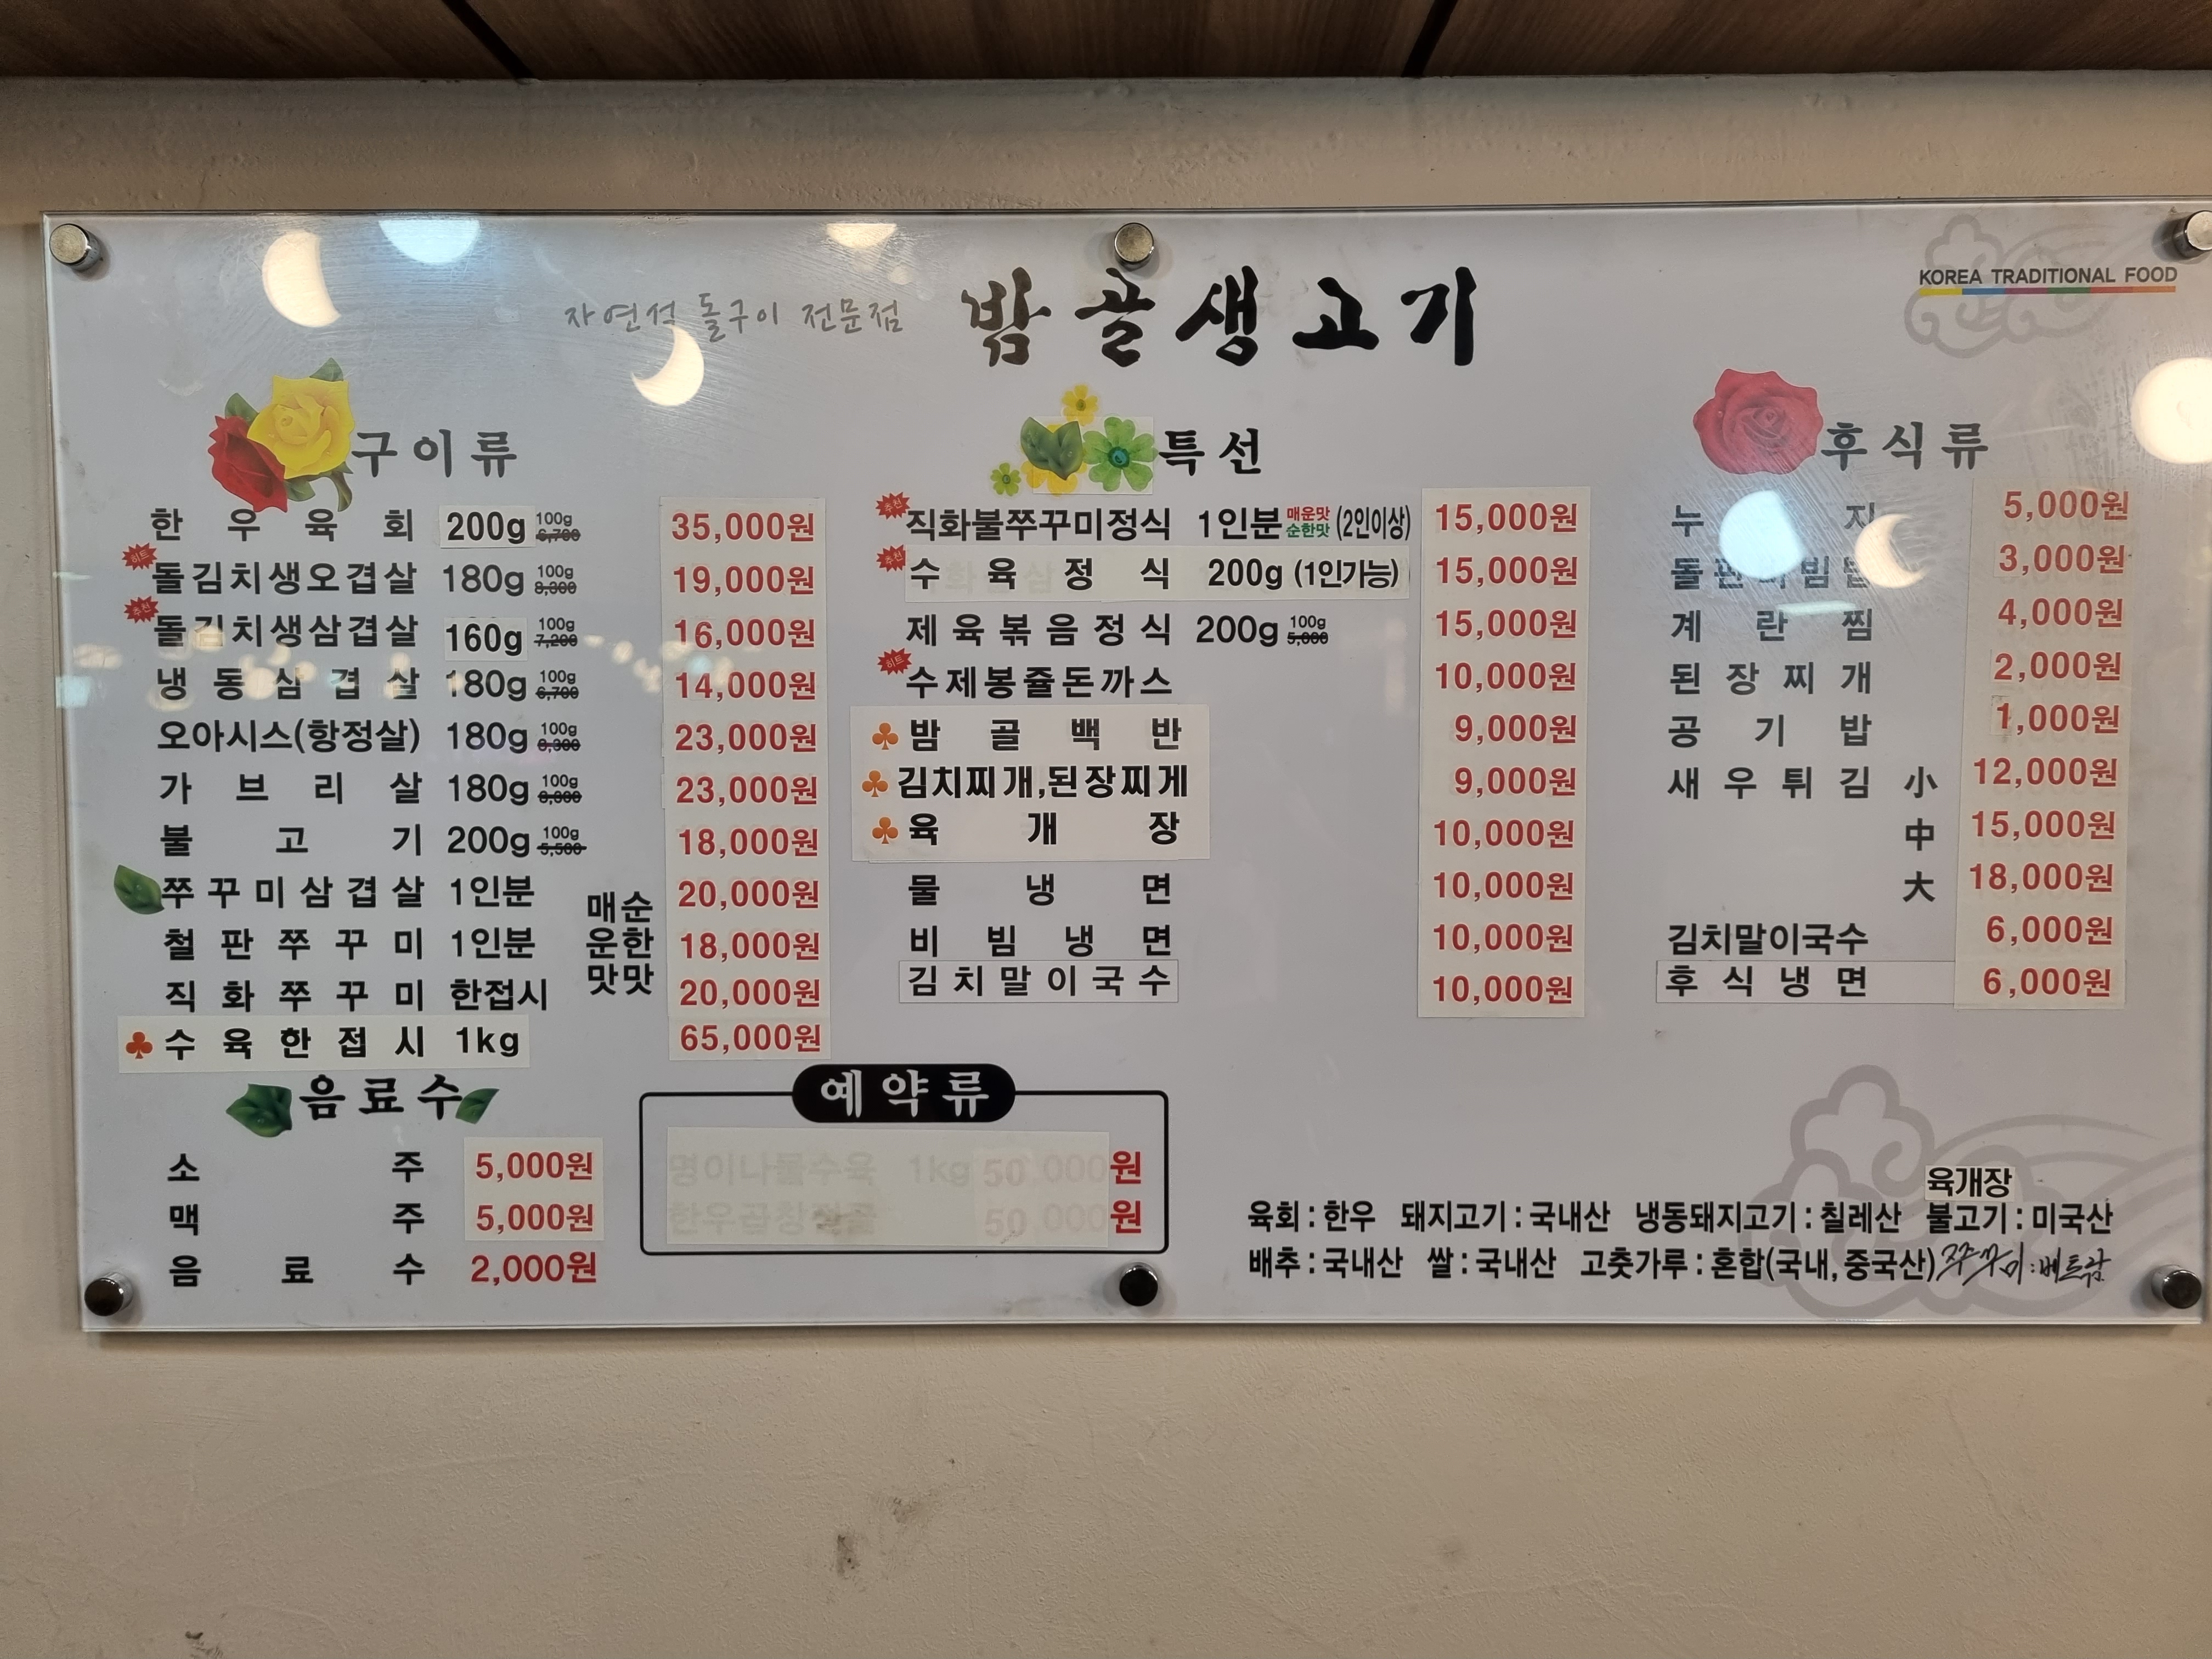 자연석 돌구이 전문점 밤골생고기
KOREA TRADITIONAL FOOD
구이류
한우육회 200g 100g 6,700 35,000원
히트 돌김치생오겹살 180g 100g 8,300 19,000원
추천 돌김치생삼겹살 160g 100g 7,200 16,000원
냉동삼겹살 180g 100g 6,700 14,000원
오아시스(항정살) 180g 100g 8,300 23,000원
가브리살 180g 100g 23,000원
불고기 200g 100g 5,500 18,000원
쭈꾸미삼겹살 1인분 20,000원
철판쭈꾸미 1인분 18,000원
직화쭈꾸미 한접시 20,000원
매운맛 순한맛
♣ 수육한접시 1kg 65,000원
음료수
소주 5,000원
맥주 5,000원
음료수 2,000원
특선
추천 직화불쭈꾸미정식 1인분 매운맛 순한맛 (2인이상) 15,000원
추천 수육정식 200g (1인가능) 15,000원
제육볶음정식 200g 100g 5,000 15,000원
히트 수제봉쥴돈까스 10,000원
♣ 밤골백반 9,000원
♣ 김치찌개,된장찌게 9,000원
♣ 육개장 10,000원
물냉면 10,000원
비빔냉면 10,000원
김치말이국수 10,000원
예약류
명이나물수육 1kg 50,000원
한우곱창전골 50,000원
후식류
누 지 5,000원
돌판 비빔밥 3,000원
계란찜 4,000원
된장찌개 2,000원
공기밥 1,000원
새우튀김 小 12,000원
中 15,000원
大 18,000원
김치말이국수 6,000원
후식냉면 6,000원
육개장
육회 : 한우 돼지고기 : 국내산 냉동돼지고기 : 칠레산 불고기 : 미국산
배추 : 국내산 쌀 : 국내산 고춧가루 : 혼합(국내, 중국산) 쭈꾸미 : 베트남